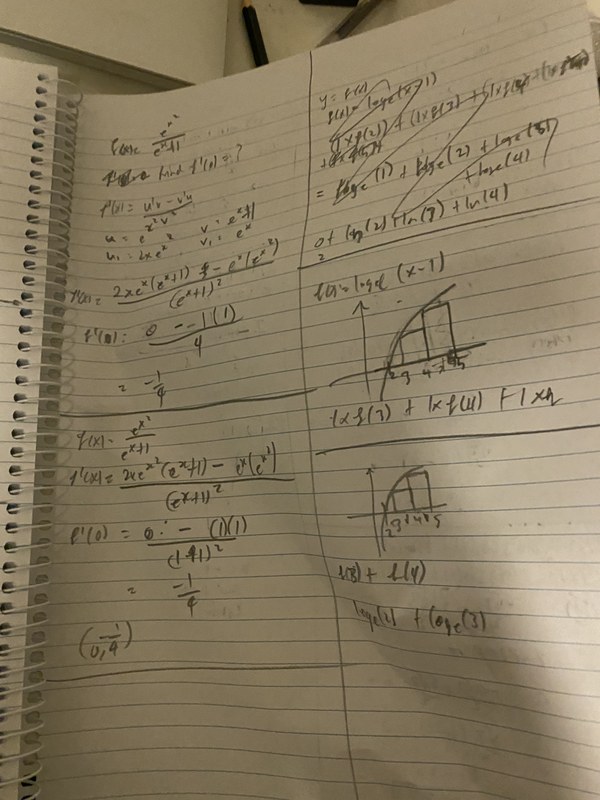 f(x) = e^x² / e^x+1
find f'(0) = ?
f'(x) = u'v - v'u / v²
u = e^x² v = e^x+1
u₁ = 2xe^x² v₁ = e^x
f'(x) = 2xe^x(e^x+1) - e^x(e^x²) / (e^x+1)²
f'(0): 0 - -1(1) / 4
= -1/4
f(x) = e^x² / e^x+1
f'(x) = 2xe^x²(e^x+1) - e^x(e^x²) / (e^x+1)²
f'(0) = 0 - (1)(1) / (1+1)²
= -1/4
y = f(x)
f(x) = loge(x-1)
(1xf(2)) + (1xf(3)) +
= loge(1) + loge(2) + loge(3)
+ loge(4)
0 + ln(2) + ln(3) + ln(4)
f(x) = loge (x-1)
2 3 4 5
1xf(3) + 1xf(4) + 1x
2 3 4 5
f(3) + f(4)
loge(2) + loge(3)